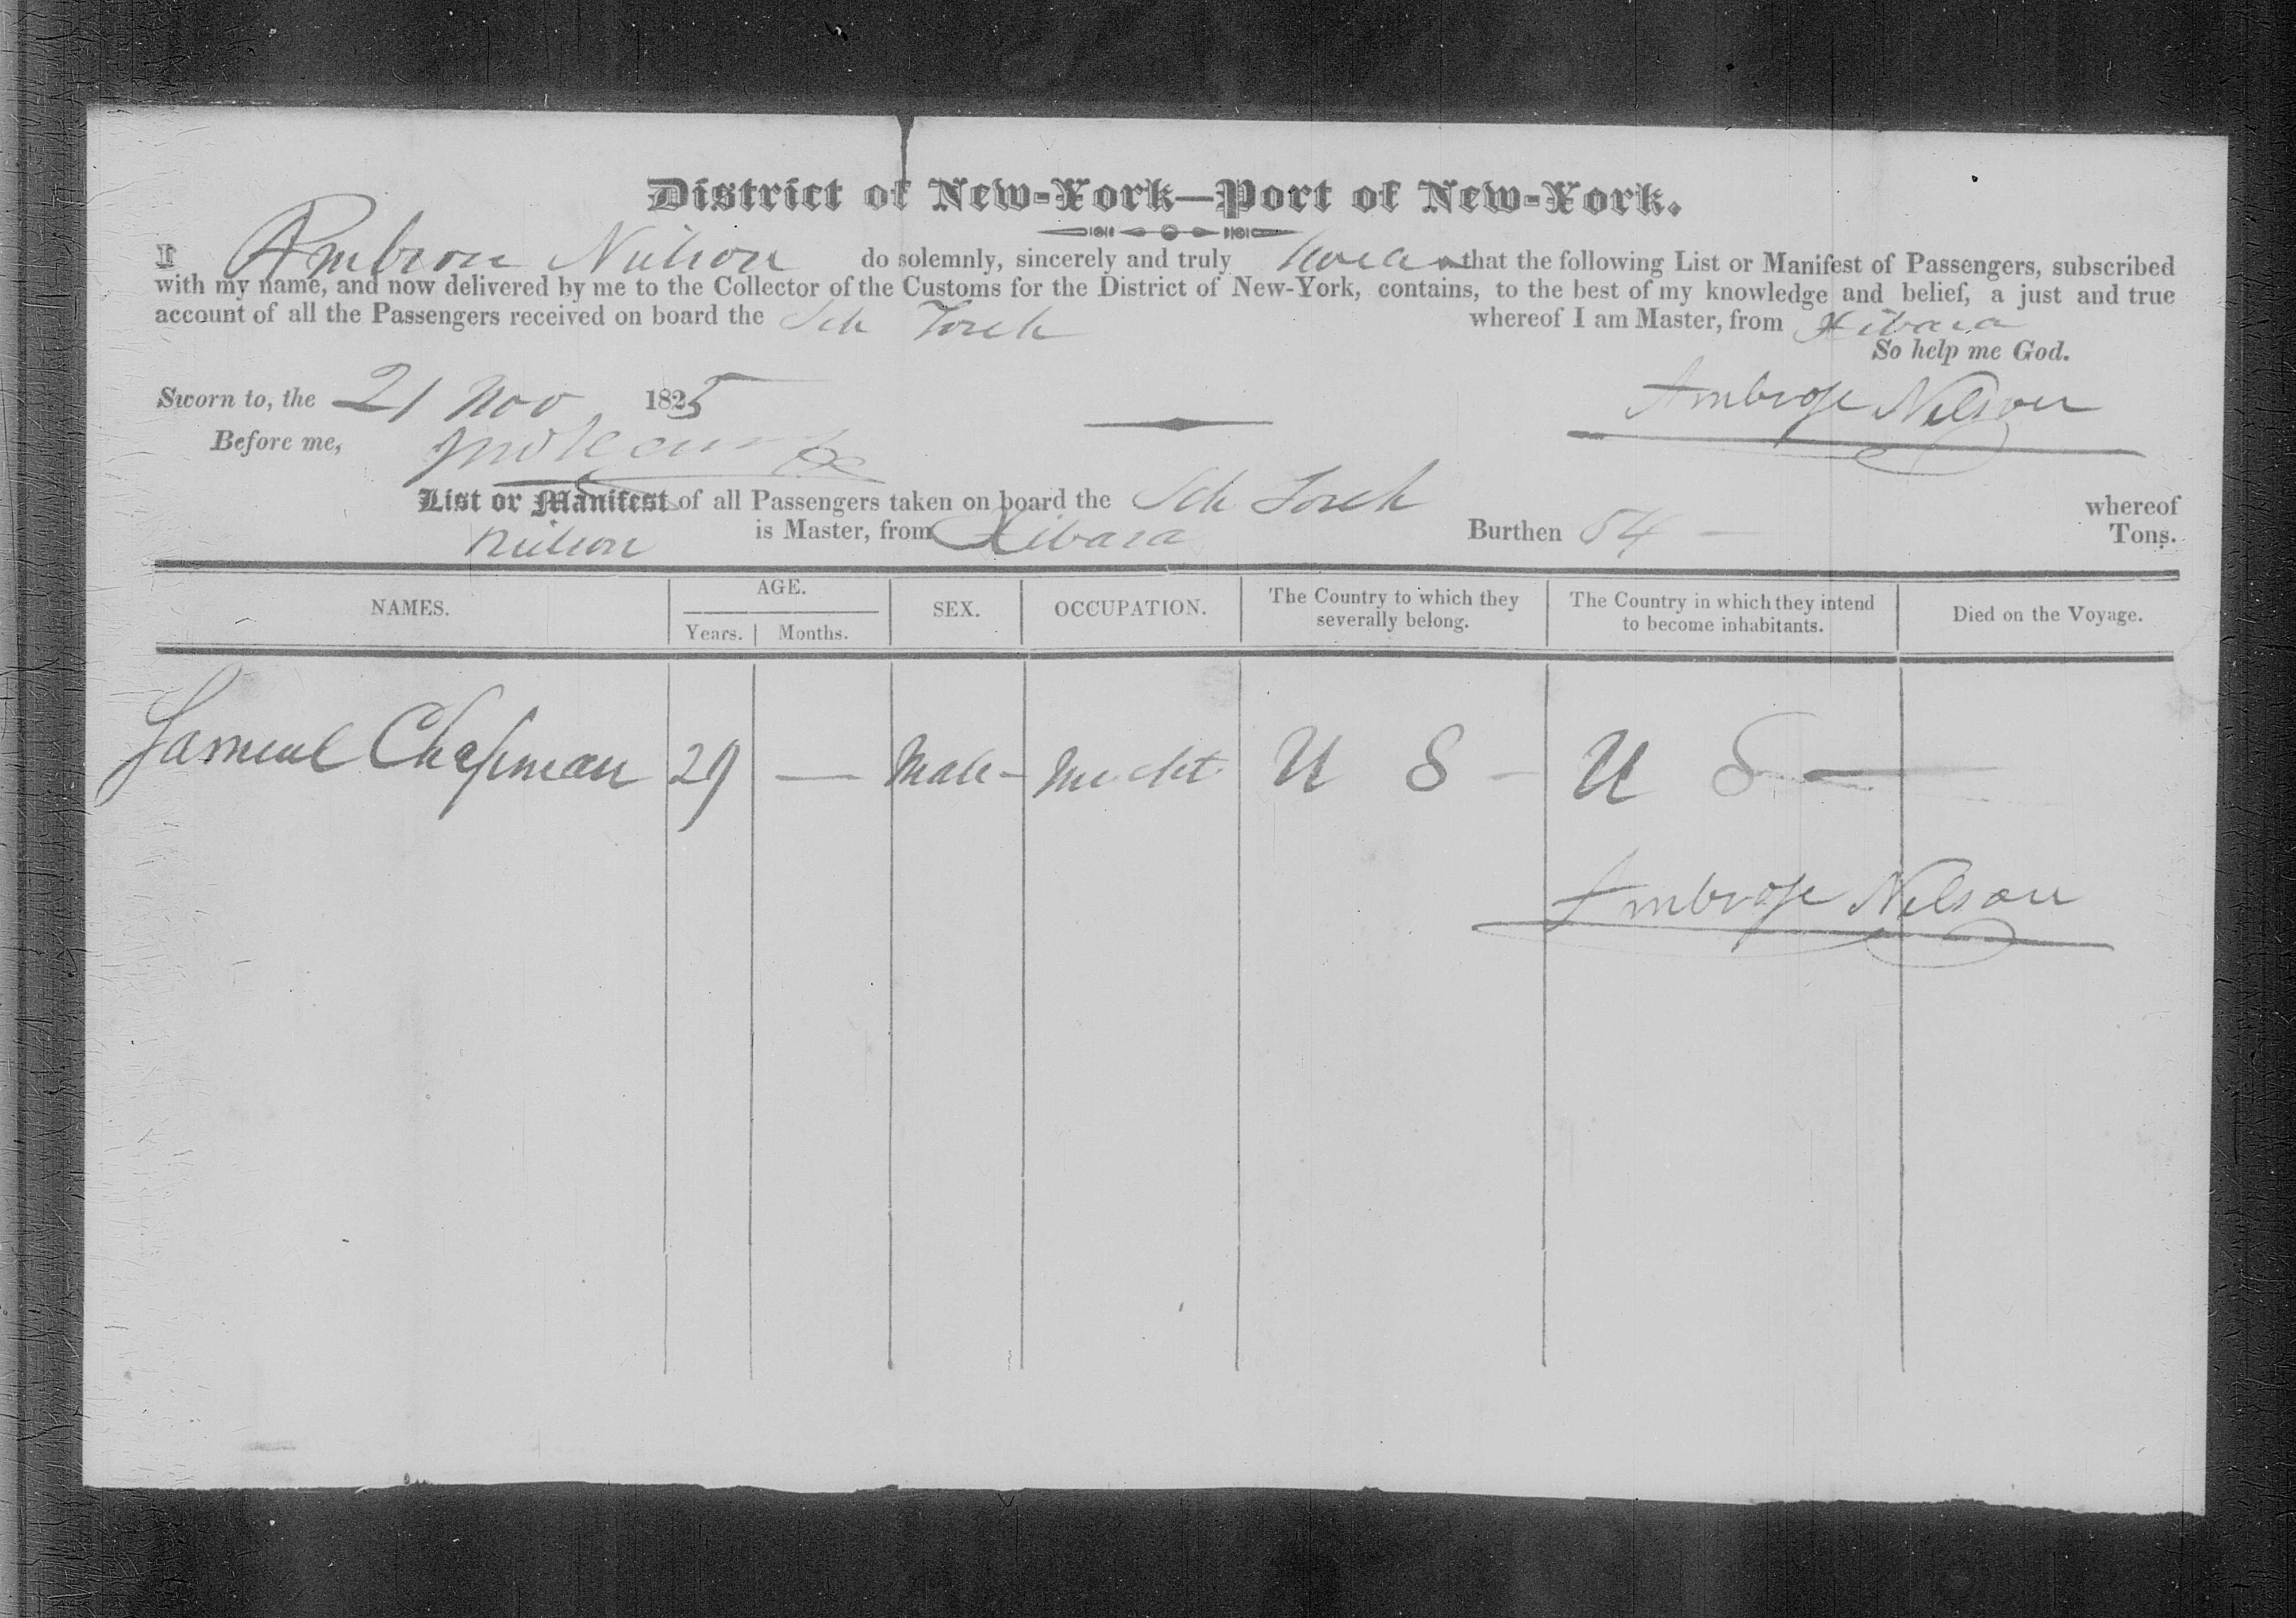 District of New-York—Port of New-York.
I Ambrose Nelson do solemnly, sincerely and truly swear that the following List or Manifest of Passengers, subscribed
with my name, and now delivered by me to the Collector of the Customs for the District of New-York, contains, to the best of my knowledge and belief, a just and true
account of all the Passengers received on board the Sch Torch whereof I am Master, from Xibara
So help me God.
Sworn to, the 21 Nov 1825
Ambrose Nelson
Before me,
List or Manifest of all Passengers taken on board the Sch Torch whereof
Nelson is Master, from Xibara Burthen 54 — Tons.
NAMES. AGE. SEX. OCCUPATION. The Country to which they severally belong. The Country in which they intend to become inhabitants. Died on the Voyage.
Years. Months.
Samuel Chapman 29 — Male - Mercht U S - U S —
Ambrose Nelson